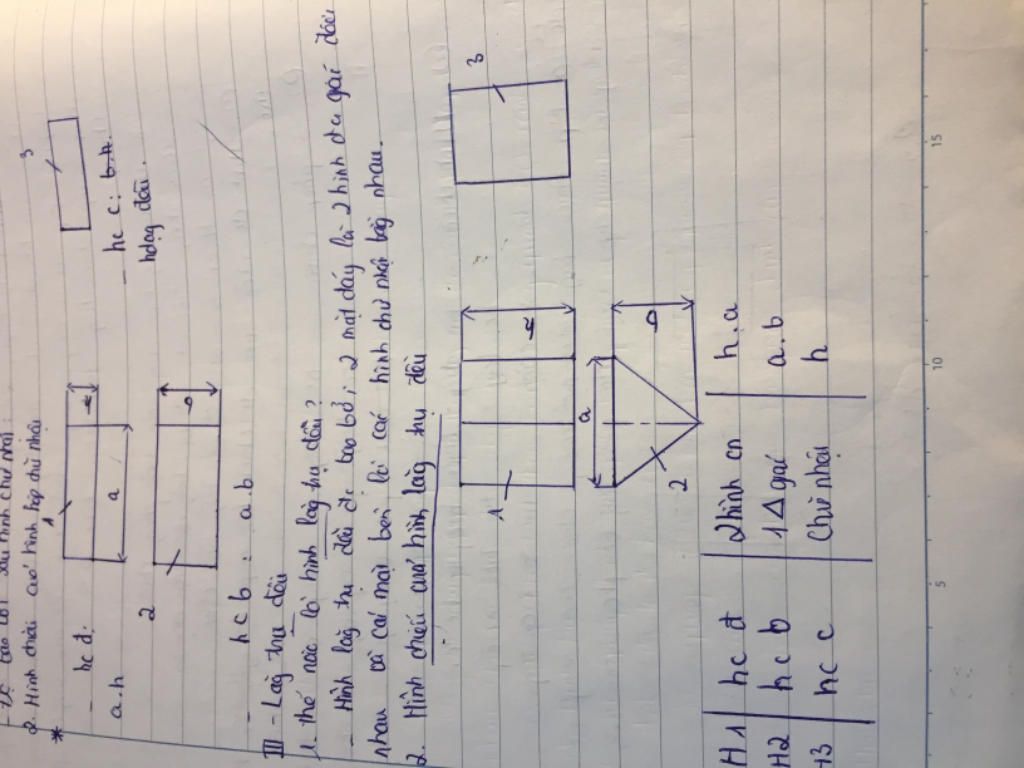 2. Hình chiếu của hình hộp chữ nhật
*
1
3
- hc đ.
a.h
a
h
- hc c: b.h.
2
b
- hc b : a.b
III - Lăng trụ đều
1. thế nào là hình lăng trụ đều?
- Hình lăng trụ đều đc bao bởi 2 mặt đáy là 2 hình đa giác đều
nhau và các mặt bên là các hình chữ nhật bằng nhau.
2. Hình chiếu của hình lăng trụ đều
1
h
3
a
b
2
H1 | hc đ | 2 hình cn | h.a
H2 | hc b | 1 Δ giác | a.b
H3 | hc c | Chữ nhật | h
5
10
15